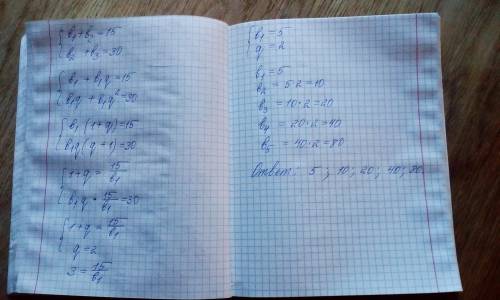 {b₁+b₂=15
{b₂+b₃=30
{b₁+b₁q=15
{b₁q+b₁q²=30
{b₁(1+q)=15
{b₁q(q+1)=30
{1+q=15/b₁
{b₁q·15/b₁=30
{1+q=15/b₁
{q=2
3=15/b₁
{b₁=5
{q=2
b₁=5
b₂=5·2=10
b₃=10·2=20
b₄=20·2=40
b₅=40·2=80
Ответ: 5; 10; 20; 40; 80.